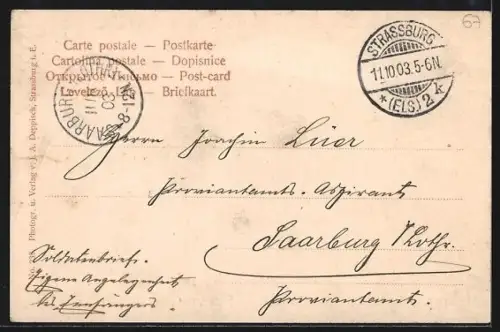 Carte postale — Postkarte
Cartolina postale — Dopisnice
Открытое письмо — Post-card
Levelező-Lap — Briefkaart.
STRASSBURG
11.10.03.5-6N.
* (ELS) 2 k
SAARBURG (LOTHR)
11/10
03
8-12N
67
Herrn Joachim Lüer
Proviantamts-Aspirant
Saarburg i/Lothr.
Proviantamt.
Soldatenbrief.
Eigene Angelegenheit
des Empfängers
Photogr. u. Verlag v. J. A. Deppisch, Strassburg i. E.